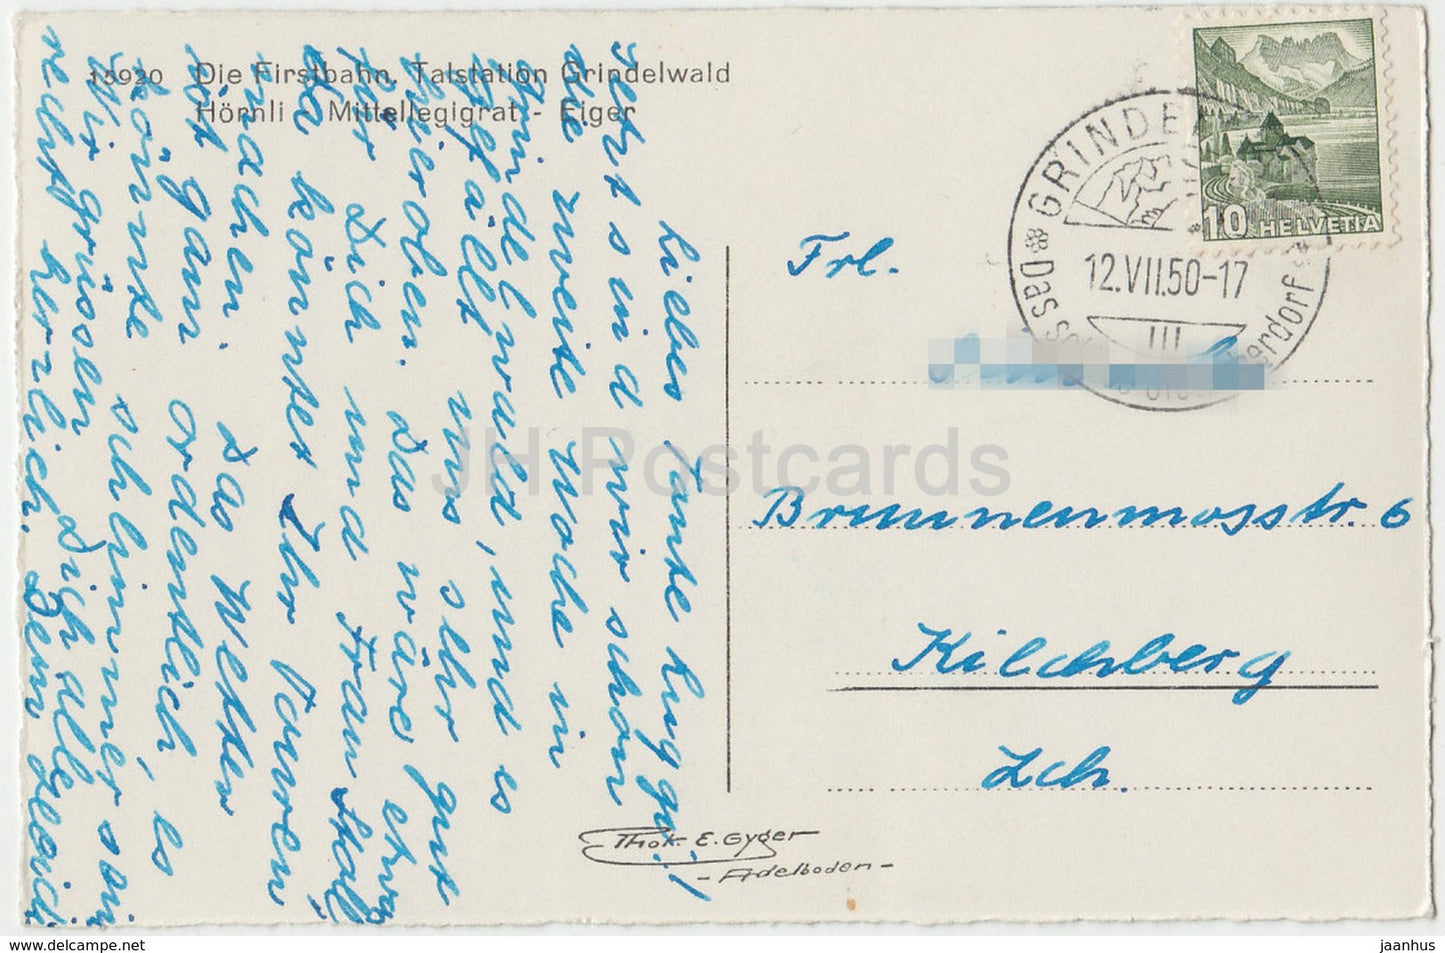 13920 Die Firstbahn, Talstation Grindelwald
Hörnli - Mittellegigrat - Eiger
Liebes Tante Huggi!
Jetzt sind wir schon
die zweite Woche in
Grindelwald, und es
gefällt uns sehr gut
hier oben. Das wäre etwas
für Dich und Fran
da könntet Ihr Touren
machen. Das Wetter
ist ganz ordentlich, es
könnte schlimmer sein
Wir grüssen Dich alle
recht herzlich. Dein
GRINDE
12.VII.50-17
Das erdorf
10 HELVETIA
Frl.
Brunnenmosstr. 6
Kilchberg
Zch.
Phot. E. Gyger
- Adelboden -
JH Postcards
www.delcampe.net
jaanhus